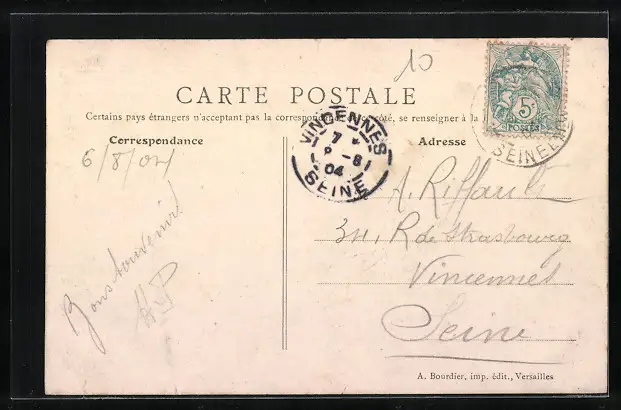 10
CARTE POSTALE
Certains pays étrangers n'acceptant pas la correspondance de ce côté, se renseigner à la
Correspondance
Adresse
5c
POSTES
VINCENNES
7
8 -8
04
SEINE
6/8/04
A. Riffault
34, R de Strasbourg
Vincennes
Seine
Bons Souvenirs
A. Bourdier, imp. édit., Versailles